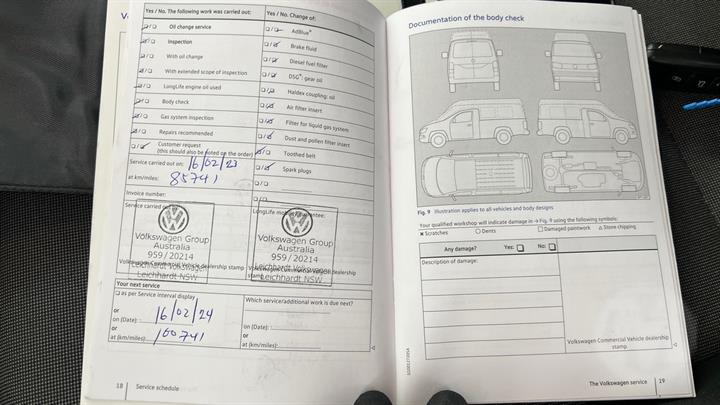 Yes / No. The following work was carried out:
☐/☐ Oil change service
☐/☐ Inspection
☐/☐ With oil change
☐/☐ With extended scope of inspection
☐/☐ LongLife engine oil used
☐/☐ Body check
☐/☐ Gas system inspection
☐/☐ Repairs recommended
☐/☐ Customer request
(this should also be noted on the order)
Service carried out on: 16/02/23
at km/miles: 85741
Invoice number:
Service carried out
Volkswagen Group
Australia
959 / 20214
Leichhardt Volkswagen
Leichhardt NSW
Volkswagen Commercial Vehicle dealership stamp
Yes / No. Change of:
☐/☐ AdBlue®
☐/☐ Brake fluid
☐/☐ Diesel fuel filter
☐/☐ DSG®: gear oil
☐/☐ Haldex coupling: oil
☐/☐ Air filter insert
☐/☐ Filter for liquid gas system
☐/☐ Dust and pollen filter insert
☐/☐ Toothed belt
☐/☐ Spark plugs
☐/☐
☐/☐
LongLife mobility guarantee:
Volkswagen Group
Australia
959 / 20214
Leichhardt Volkswagen
Leichhardt NSW
Volkswagen Commercial Vehicle dealership
stamp
Your next service
☐ as per Service interval display
or
on (Date): 16/02/24
or
at (km/miles): 100741
Which service/additional work is due next?
on (Date):
or
at (km/miles):
18 Service schedule
Documentation of the body check
Fig. 9 Illustration applies to all vehicles and body designs
Your qualified workshop will indicate damage in → Fig. 9 using the following symbols:
✖ Scratches ○ Dents □ Damaged paintwork △ Stone chipping
Any damage? Yes: ☐ No: ☐
Description of damage:
Volkswagen Commercial Vehicle dealership
stamp.
The Volkswagen service 19